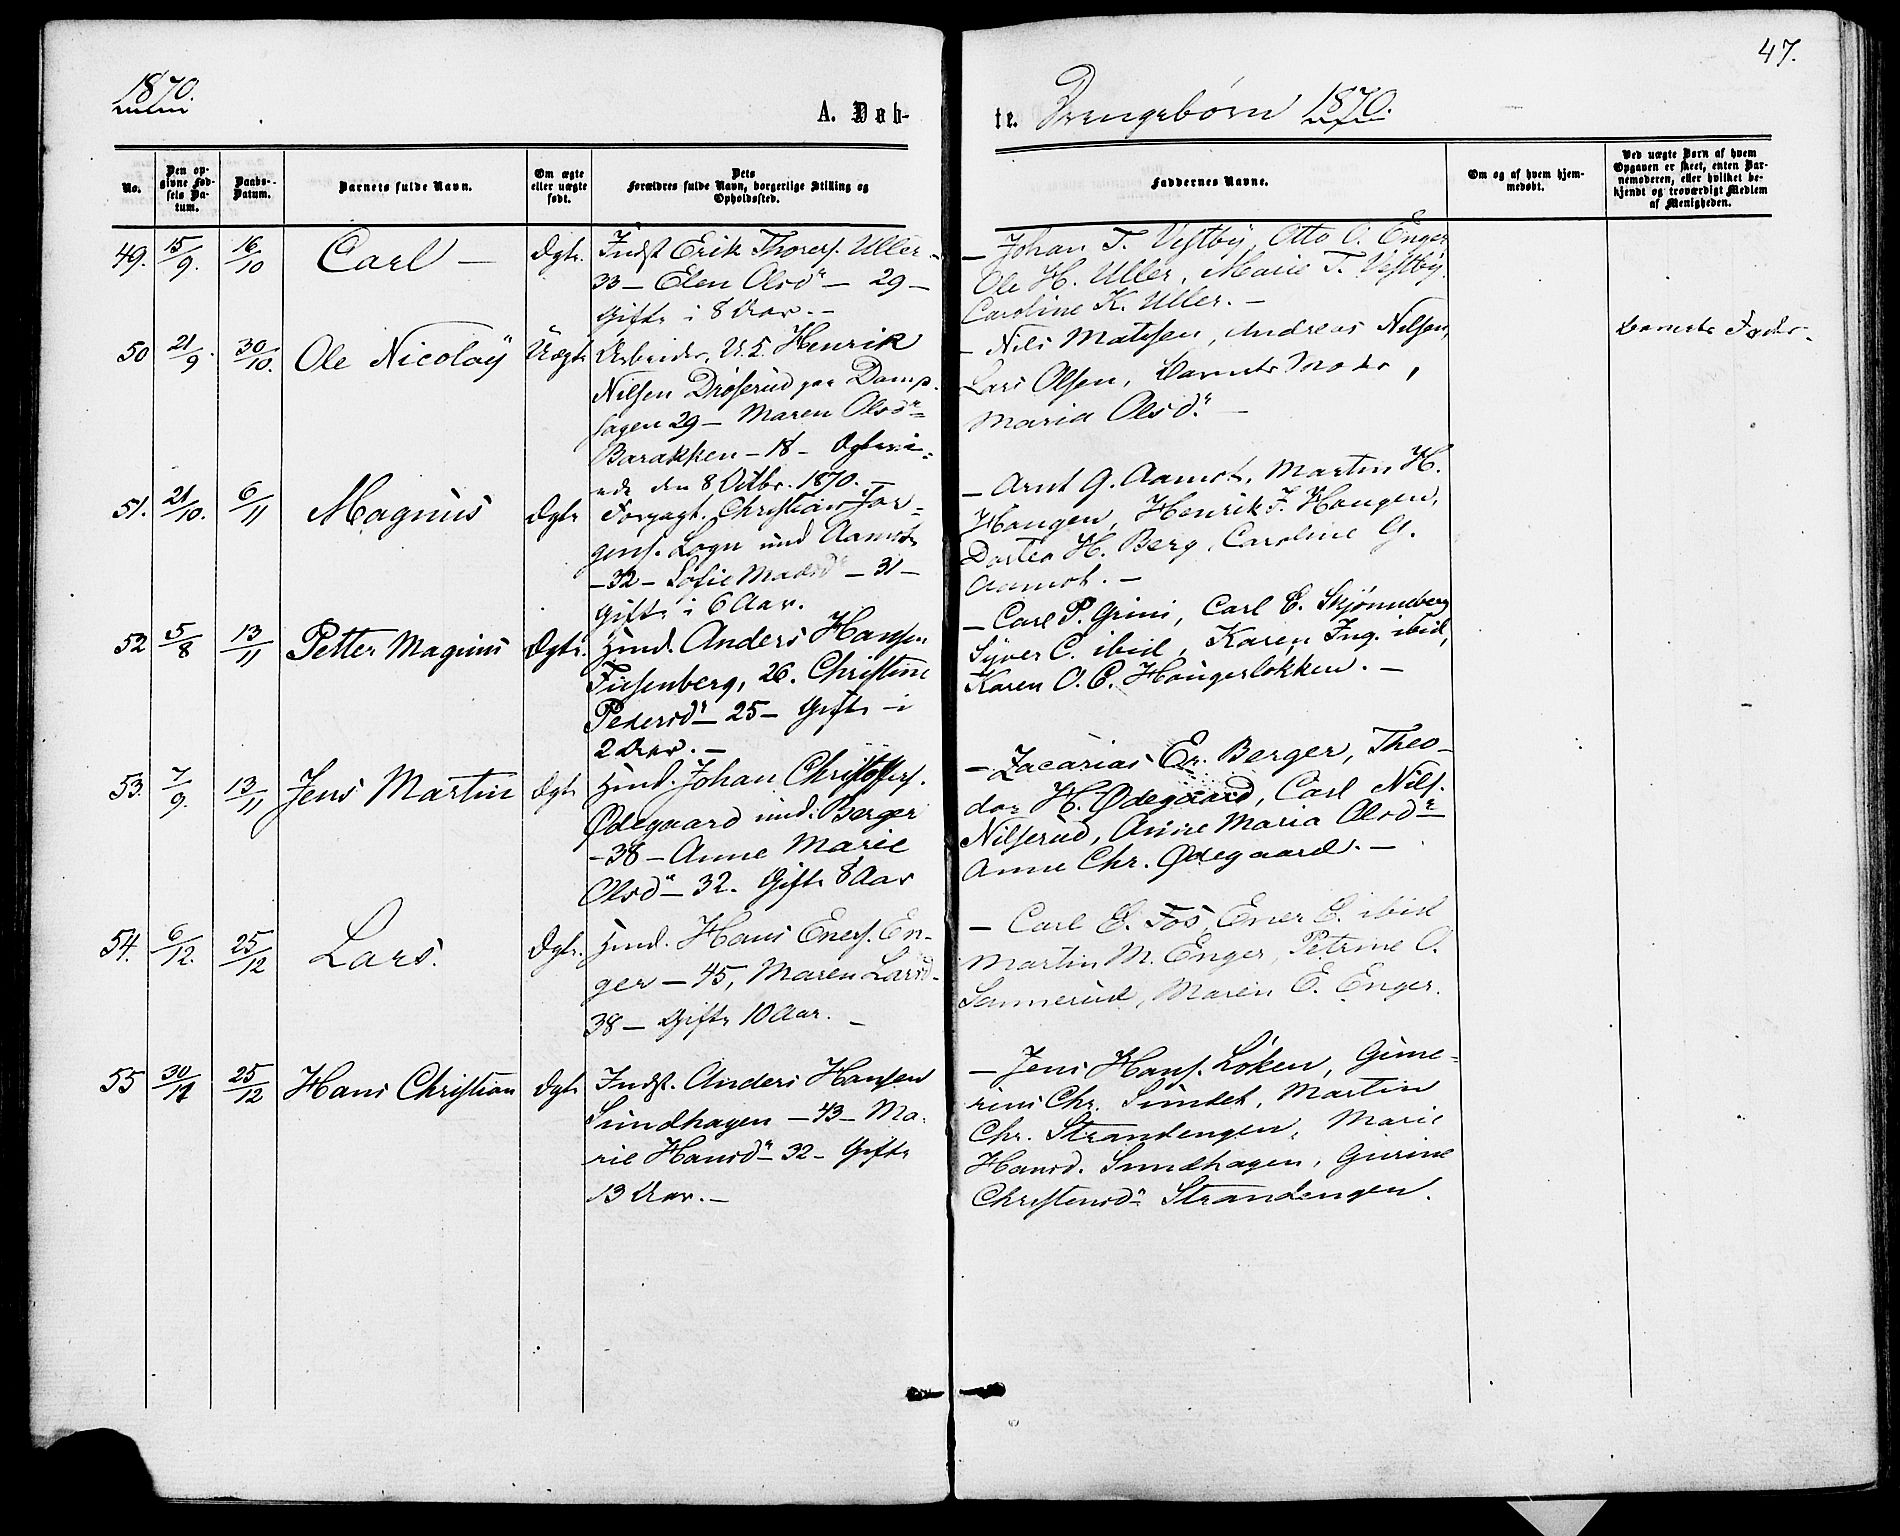 47.
1870.
A. Døb-
te. Drengebørn 1870.
No.
Den op-
givne Fød-
sels Da-
tum.
Daabs-
Datum.
Barnets fulde Navn.
Om ægte
eller uægte
født.
Dets
Forældres fulde Navn, borgerlige Stilling og
Opholdssted.
Faddernes Navne.
Om og af hvem hjem-
medøbt.
Ved uægte Børn af hvem
Opgaven er skeet, enten Bar-
nemoderen, eller hvilket be-
kjendt og troværdigt Medlem
af Menigheden.
49. 15/9. 16/10 Carl — Ægte.
Indst Erik Thorers. Uller —
33 — Elen Olsdr — 29 —
Gifte i 8 Aar. —
— Johan T. Vestby, Otto O. Enger
Ole H. Uller, Marie T. Vestby.
Caroline K. Uller. —
50 21/9. 30/10. Ole Nicolay Uægte
Arbeider, U. K. Henrik
Nilsen Drøserud paa Damp-
sagen 29 — Maren Olsdr
Barakken — 18 — Ægtevie-
ede den 8 Octbr. 1870. —
— Nils Matsen, Andreas Nilsen,
Lars Olsen, Barnets Moder,
Maria Olsdr. —
Barnets Fader.
51. 21/10. 6/11 Magnus Ægte
Forpagt. Christian Jør-
gens. Logn und Aamot
— 32 — Sofie Madsdr — 31 —
Gifte i 6 Aar.
— Arnt G. Aamot, Martin H.
Haugen, Henrik F. Haugen,
Dortea H. Berg, Caroline G.
Aamot. —
52 5/8 13/11 Petter Magnus Ægte.
Husmd. Anders Hansen
Fusenberg, 26. Christine
Pedersdr — 25 — Gifte i
2 Aar. —
— Carl P. Grini, Carl E. Skjønneberg
Syver C. ibid, Karen Ing. ibid,
Karen O. P. Haugerløkken. —
53. 7/9. 13/11 Jens Martin Ægte
Husmd. Johan Christoffers.
Ødegaard und. Berger
— 38 — Anne Marie
Olsdr — 32. Gifte 8 Aar
— Zacarias Er. Berger, Theo-
dor H. Ødegaard, Carl Nils.
Nilserud, Anne Maria Olsdr
Anne Chr. Ødegaard. —
54. 6/12. 25/12 Lars. Ægte.
Husmd. Hans Eners. En-
ger — 45, Maren Larsd.
38 — Gifte 10 Aar. —
— Carl E. Fos, Ener E. ibid
Martin M. Enger, Petrine O.
Sannerud, Maren E. Enger.
55 30/11 25/12 Hans Christian Ægte
Indst. Anders Hansen
Sundhagen — 43 — Ma-
rie Hansdr 32 — Gifte
13 Aar. —
— Jens Hans. Løken, Gune-
rius Chr. Sundet, Martin
Chr. Strandengen, Marie
Hansd. Sundhagen, Gurine
Christensdr Strandengen.